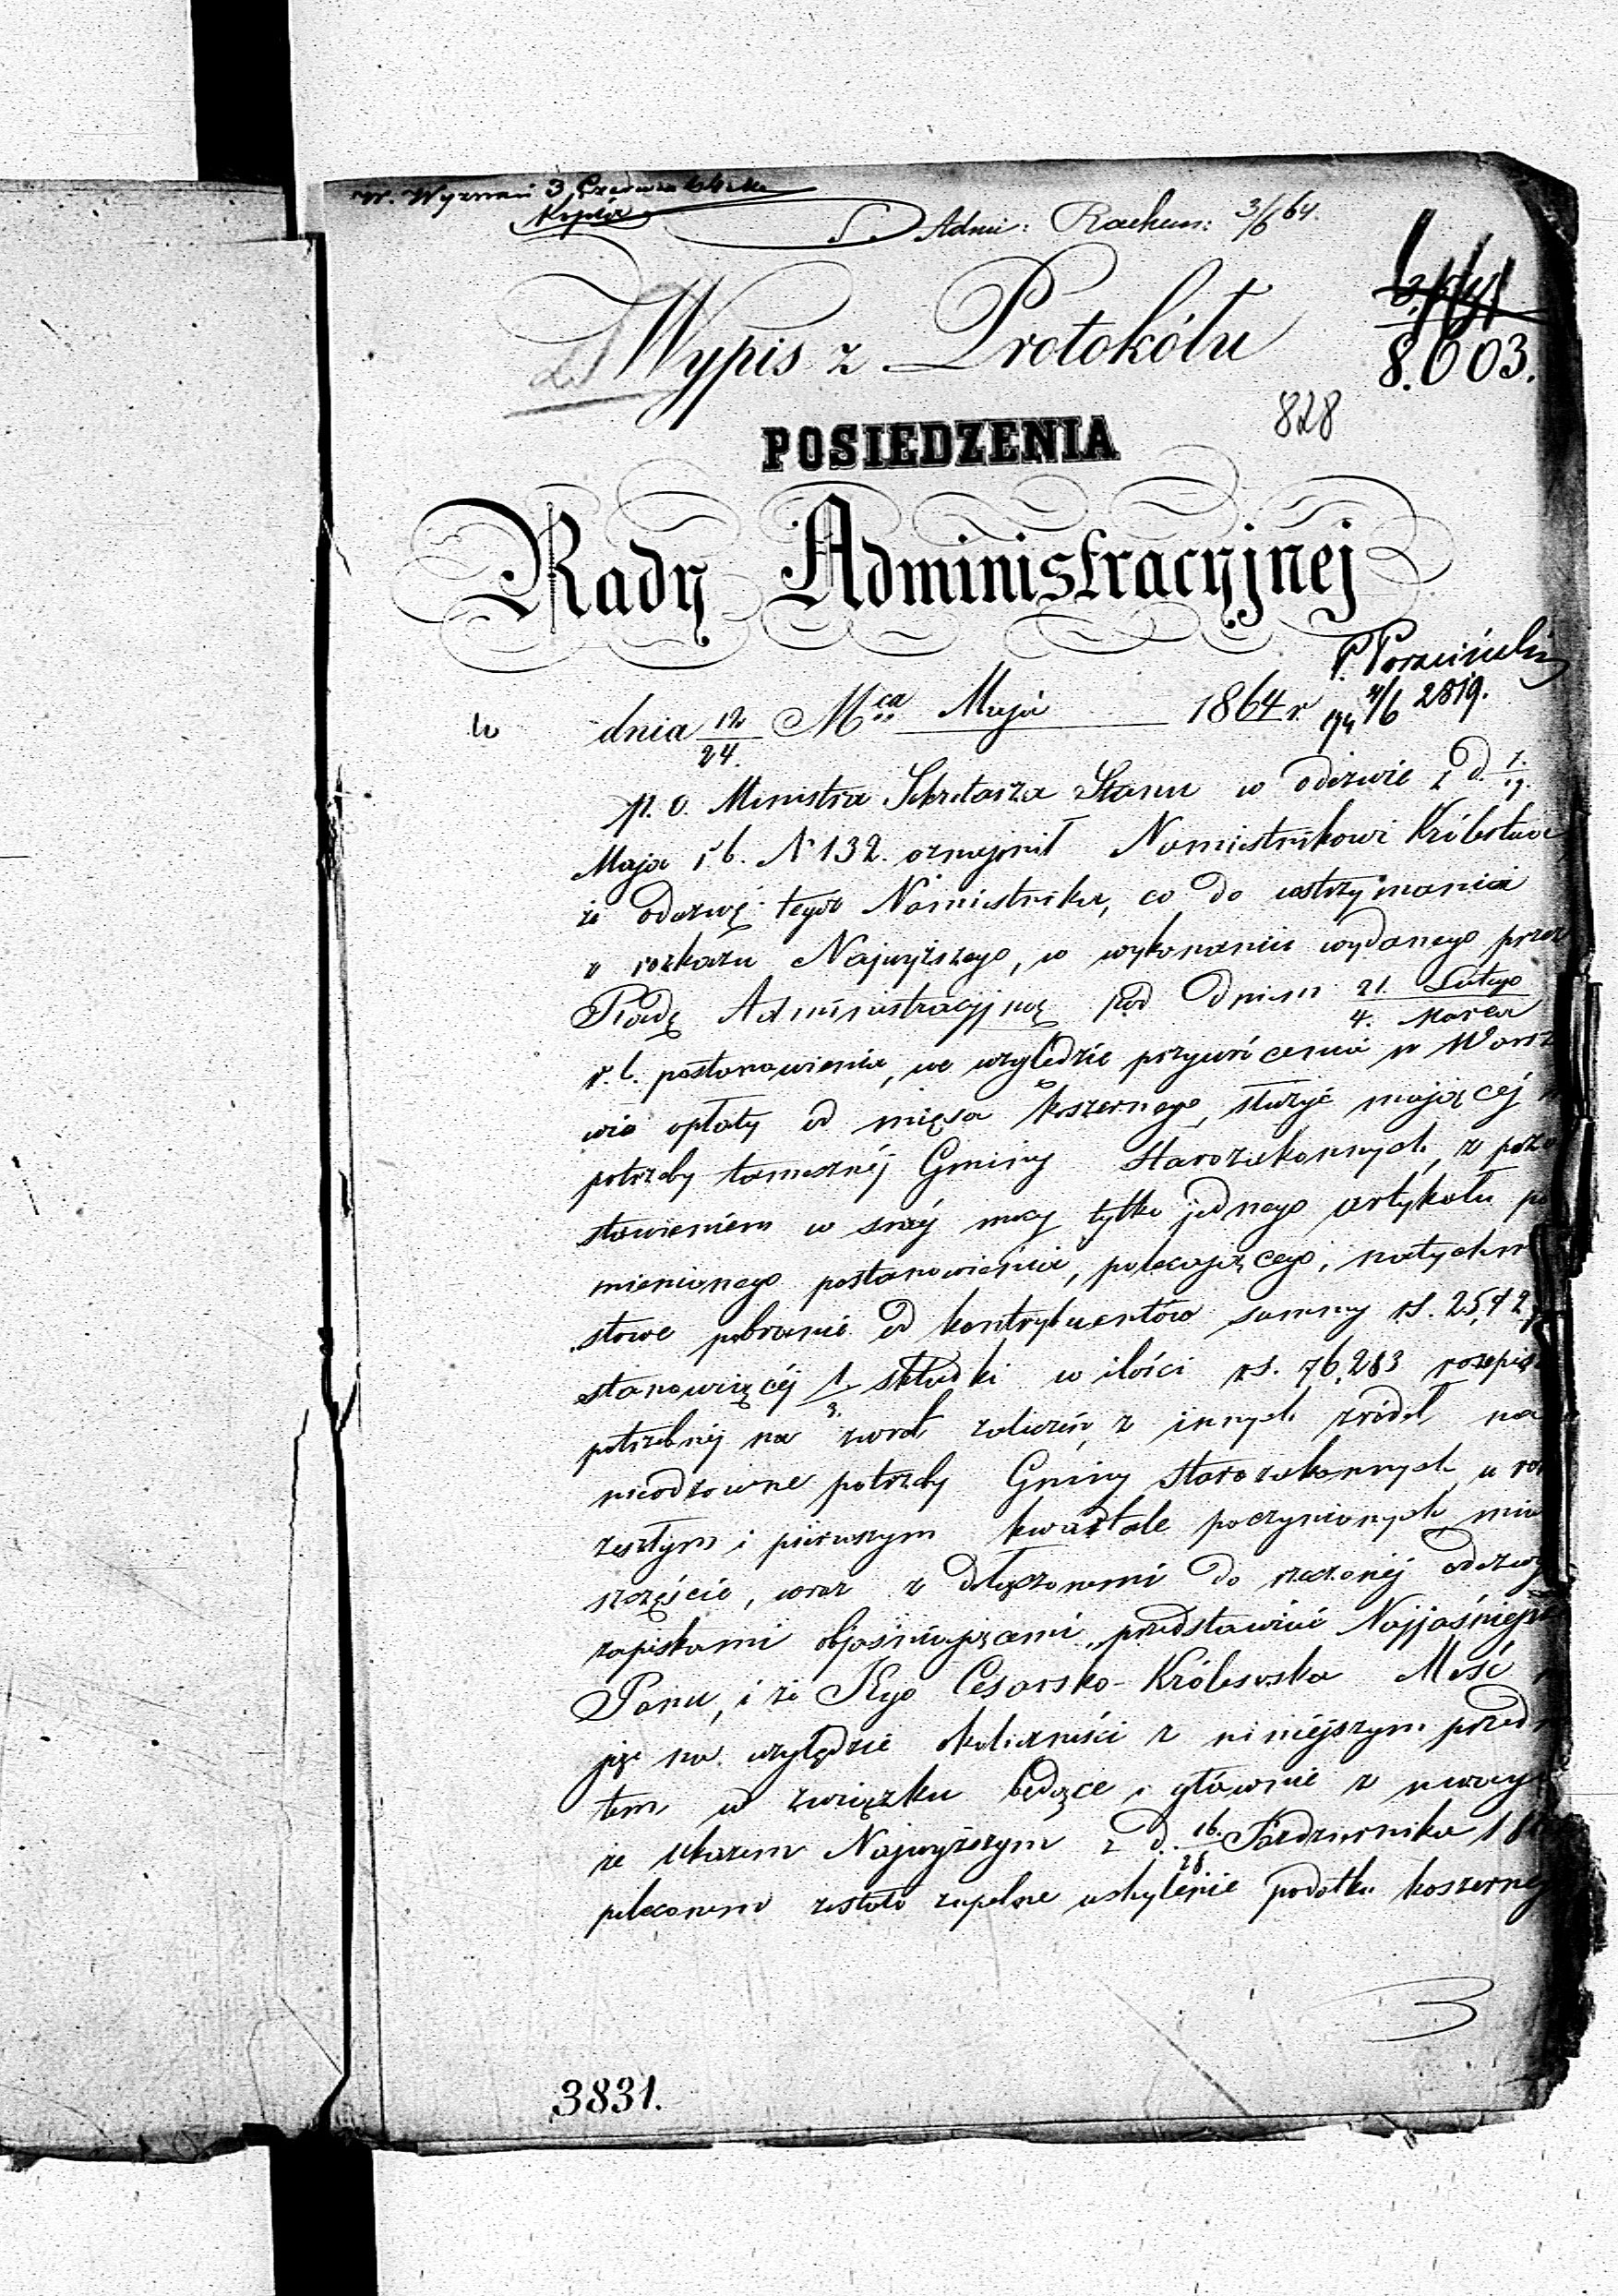 W. Wyznań 3 Czerwca
Kopia
S. Admi: Rachun: 3/6 64.
Wypis z Protokółu
8.603.
828
POSIEDZENIA
Rady Administracyjnej
4/6 2819.
dnia 12/24. Mca Maja 1864 r.
p. o. Ministra Sekretarza Stanu w odezwie z d. 7./19.
Maja r b. N 132. oznajmił Namiestnikowi Królestwa,
że odezwę tegoż Namiestnika, co do wstrzymania
z rozkazu Najwyższego, w wykonaniu wydanego przez
Radę Administracyjną pod dniem 21. Lutego/4. Marca
r. b. postanowienia, we względzie przywrócenia w Warsza
wie opłaty od mięsa koszernego, służyć mającej
potrzeby tamesznéj Gminy Starozakonnych, z pozo
stawieniem w swéj mocy tylko jednego artykułu po
mienionego postanowienia, polecającego, natychmia
stowe pobranie od kontrybuentów summy rs. 25,42
stanowiącéj 1/3. składki w ilości rs. 76,283 rozpis
potrzebnéj na zwrot zaliczeń z innych źródeł, na
nieodzowne potrzeby Gminy Starozakonnych, w ro
zeszłym i pierwszym kwartale poczynionych, mia
szczęście, wraz z dołączonemi do rzeczonéj odezwy
zapiskami objaśniającemi, przedstawiać Najjaśniejsze
Panu, i że Jego Cesarsko-Królewska Mość
jąc na względzie okoliczności z niniejszym przedm
tem w związku będące i głównie z uwagi
że Ukazem Najwyższym z d. 16./28. Października 18
poleconem zostało zupełne uchylenie podatku koszerne
3831.